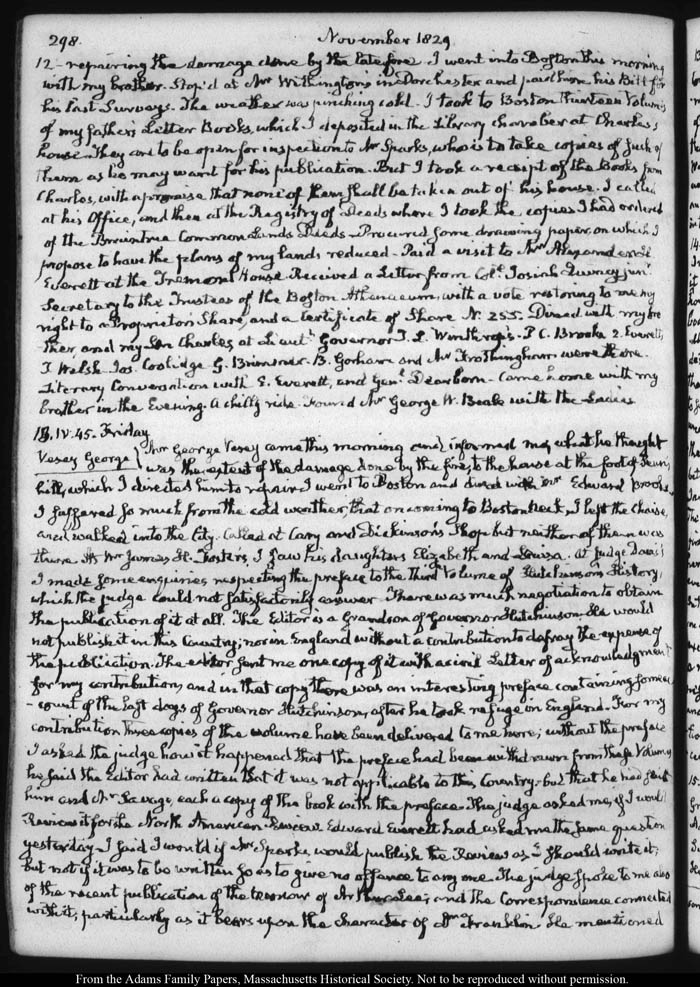 298. November 1829
12 - repairing the damage done by the late fire. I went into Boston this morning
with my brother. Stop'd at Mr Withington's in Dorchester and paid him his Bill for
his last Surveys. The weather was pinching cold. I took to Boston thirteen Volumes
of my father's Letter Books, which I deposited in the Library chamber at Charles's
house. They are to be open for inspection to Mr Sparks, who is to take copies of such of
them as he may want for his publication. But I took a receipt of the Books from
Charles, with a promise that none of them shall be taken out of his house. I called
at his Office, and then at the Registry of Deeds where I took the copies I had ordered
of the Braintree Common Lands Deeds. Procured some drawing paper on which I
propose to have the plans of my lands reduced. Paid a visit to Mr Alexander H.
Everett at the Tremont House. Received a Letter from Col. Josiah Quincy junr
Secretary to the Trustees of the Boston Athenaeum, with a vote restoring to me my
right to a Proprietor's Share, and a Certificate of Share N. 255. Dined with my bro-
ther, and my Son Charles at Lieutt Governor T. L. Winthrop's. P. C. Brooks 2. Everetts,
J. Welsh Jos. Coolidge G. B. Gorham and Mr Frothingham were there.
Literary Conversation with E. Everett, and Genl Dearborn. Came home with my
brother in the Evening. A chilly ride. Found Mr George W. Beale with the Ladies
13. IV.45. Friday
Veasey George } Mr George Veasey came this morning and informed me, what he thought
was the extent of the damage done by the fire, to the house at the foot of Penn's
hill, which I directed him to repair. I went to Boston and dined with Mr Edward Brooks.
I suffered so much from the cold weather, that on coming to Boston neck, I left the chaise,
and walked into the City. Called at Cary and Dickinson's Shop but neither of them was
there. At Mr James H. Foster's, I saw his daughters Elizabeth and Louisa. At Judge Davis's
I made some enquiries respecting the preface to the Third Volume of Hutchinson's History,
which the judge could not satisfactorily answer. There was much negotiation to obtain
the publication of it at all. The Editor is a Grandson of Governor Hutchinson. He would
not publish it in this Country; nor in England without a contribution to defray the expense of
the publication. The editor sent me one copy of it with a civil Letter of acknowledgment
for my contribution, and in that copy there was an interesting preface containing some ac-
-count of the last days of Governor Hutchinson, after he took refuge in England. For my
contribution three copies of the volume have been delivered to me here; without the preface
I asked the judge how it happened that the preface had been withdrawn from these Volumes
he said the Editor had written that it was not applicable to this Country. but that he had sent
him and Mr Savage, each a copy of the book with the preface. The judge asked me, if I would
Review it for the North American Review. Edward Everett had asked me the same question
yesterday. I said I would if Mr Sparks, would publish the Review as I should write it;
but not if it was to be written so as to give no offence to any one. The judge spoke to me also
of the recent publication of the of Arthur Lee; and the Correspondence connected
with it, particularly as it bears upon the character of Dr Franklin. He mentioned
From the Adams Family Papers, Massachusetts Historical Society. Not to be reproduced without permission.